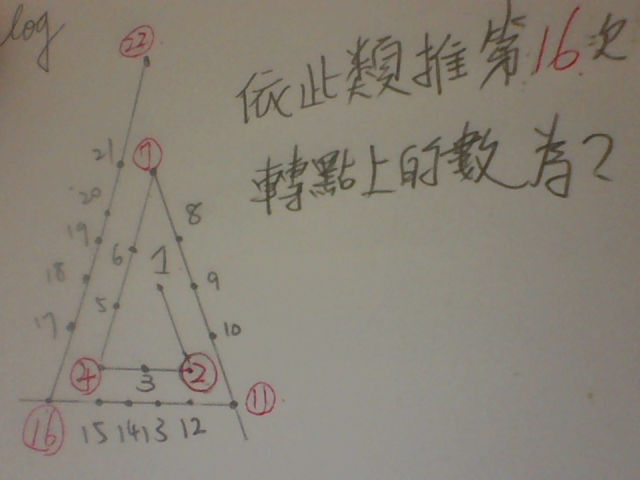 log
依此類推第16次
轉點上的數為?
22
21
7
20
8
19
6
1
18
9
5
17
10
4
3
2
16
15
14
13
12
11